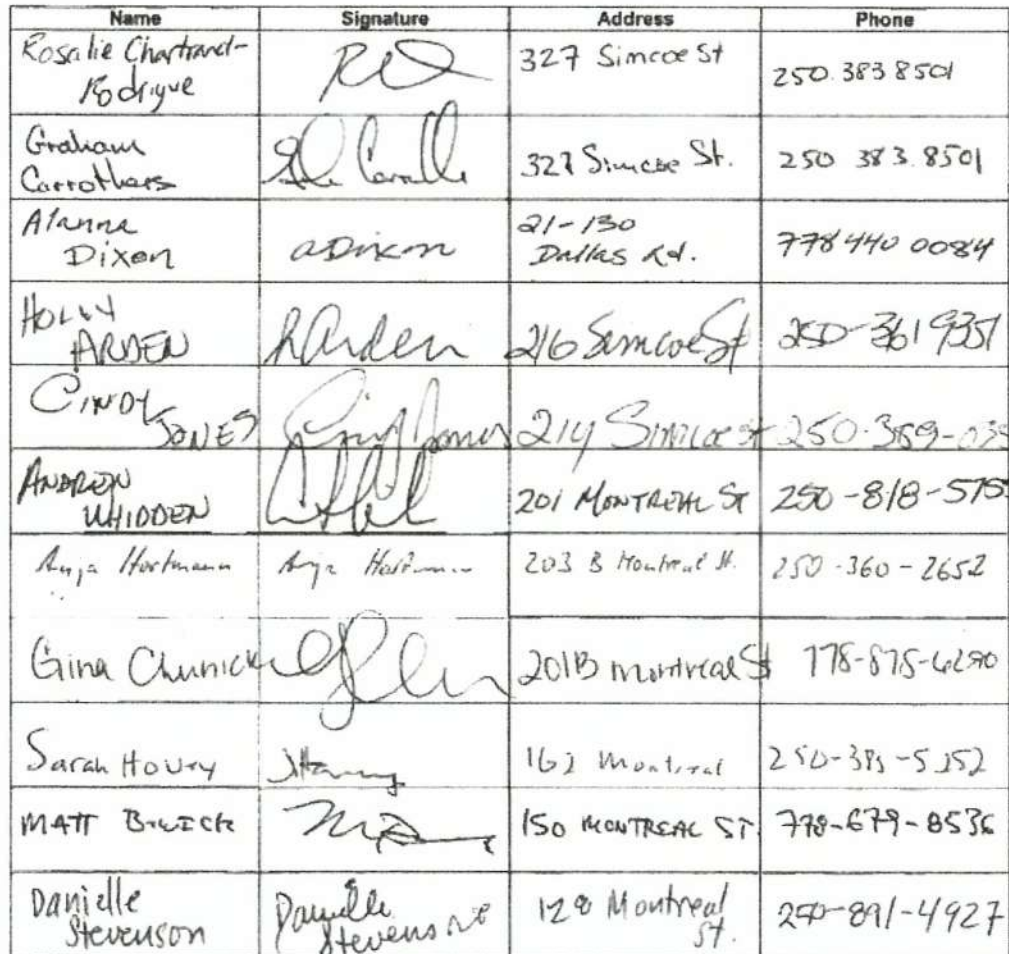 Name Signature Address Phone
Rosalie Chartrand-
Rodrigue 327 Simcoe St 250.383 8501
Graham
Carrothers 327 Simcoe St. 250 383.8501
Alanna
Dixon aDixon 21-130
Dallas Rd. 778 440 0084
HOLLY
ARDEN hArden 216 Simcoe St 250-361 9351
CINDY
JONES Cindy Jones 214 Simcoe St 250-389-03
ANDREW
WHIDDEN 201 MONTREAL ST 250-818-575
Anja Hartmann Anja Hartmann 203 B Montreal St. 250-360-2652
Gina 201B Montreal St 778-875-6290
Sarah 162 Montreal
MATT 150 MONTREAL ST. 778-679-8536
Danielle
Stevenson Danielle
Stevenson 128 Montreal
St. 250-891-4927